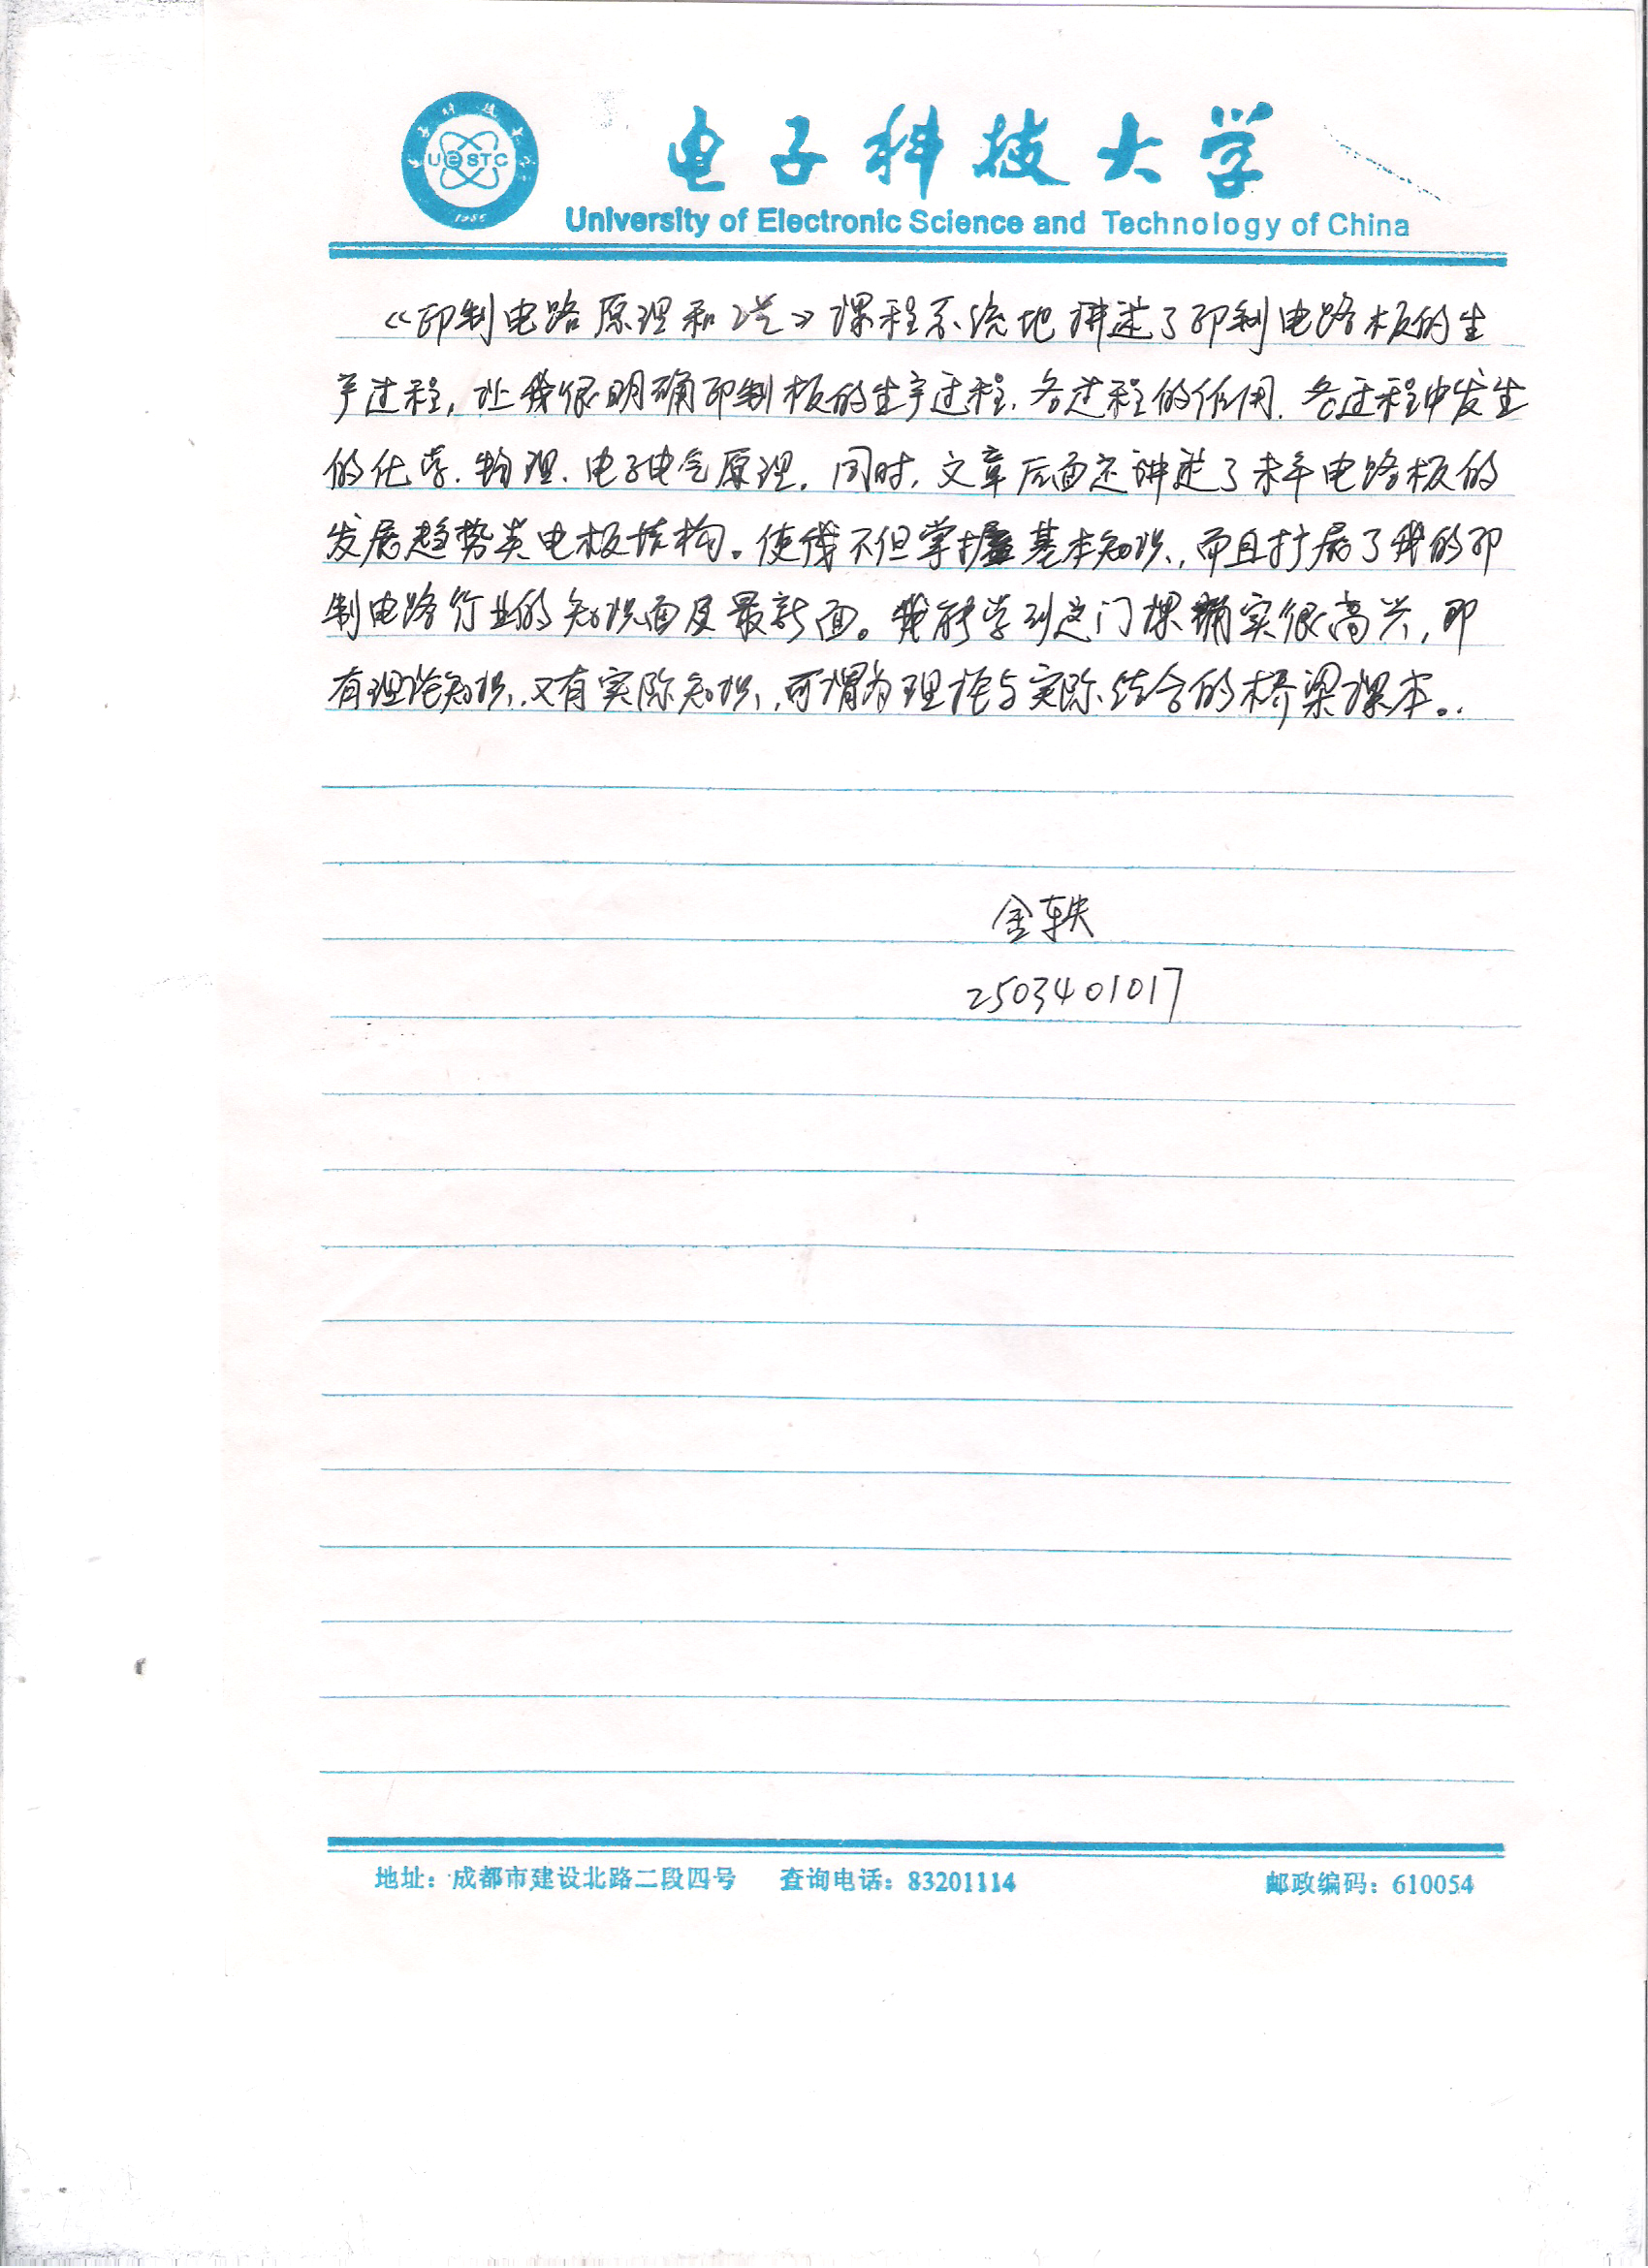 UESTC
1956
电子科技大学
University of Electronic Science and Technology of China
《印制电路原理和工艺》课程系统地讲述了印制电路板的生
产过程,让我很明确印制板的生产过程、各过程的作用、各过程中发生
的化学、物理、电子电气原理。同时,文章后面还讲述了未来电路板的
发展趋势类电板结构。使我不但掌握基本知识,而且扩展了我的印
制电路行业的知识面及最新面。我能学到这门课确实很高兴,即
有理论知识,又有实际知识,可谓为理论与实际结合的桥梁课本。
金轶
2503401017
地址:成都市建设北路二段四号 查询电话:83201114 邮政编码:610054